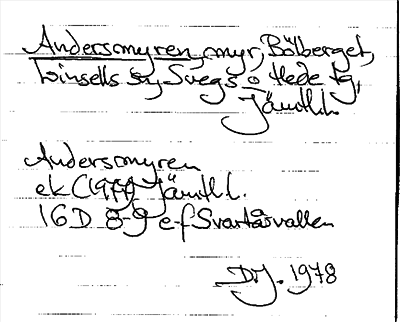 Andersmyren, myr, Bölberget,
Linsells sn, Svegs o Hede tg,
Jämtl.l.
Andersmyren
ek (1971) Jämtl.l.
16D 8-9 e-f Svartåsvallen
DJ. 1978